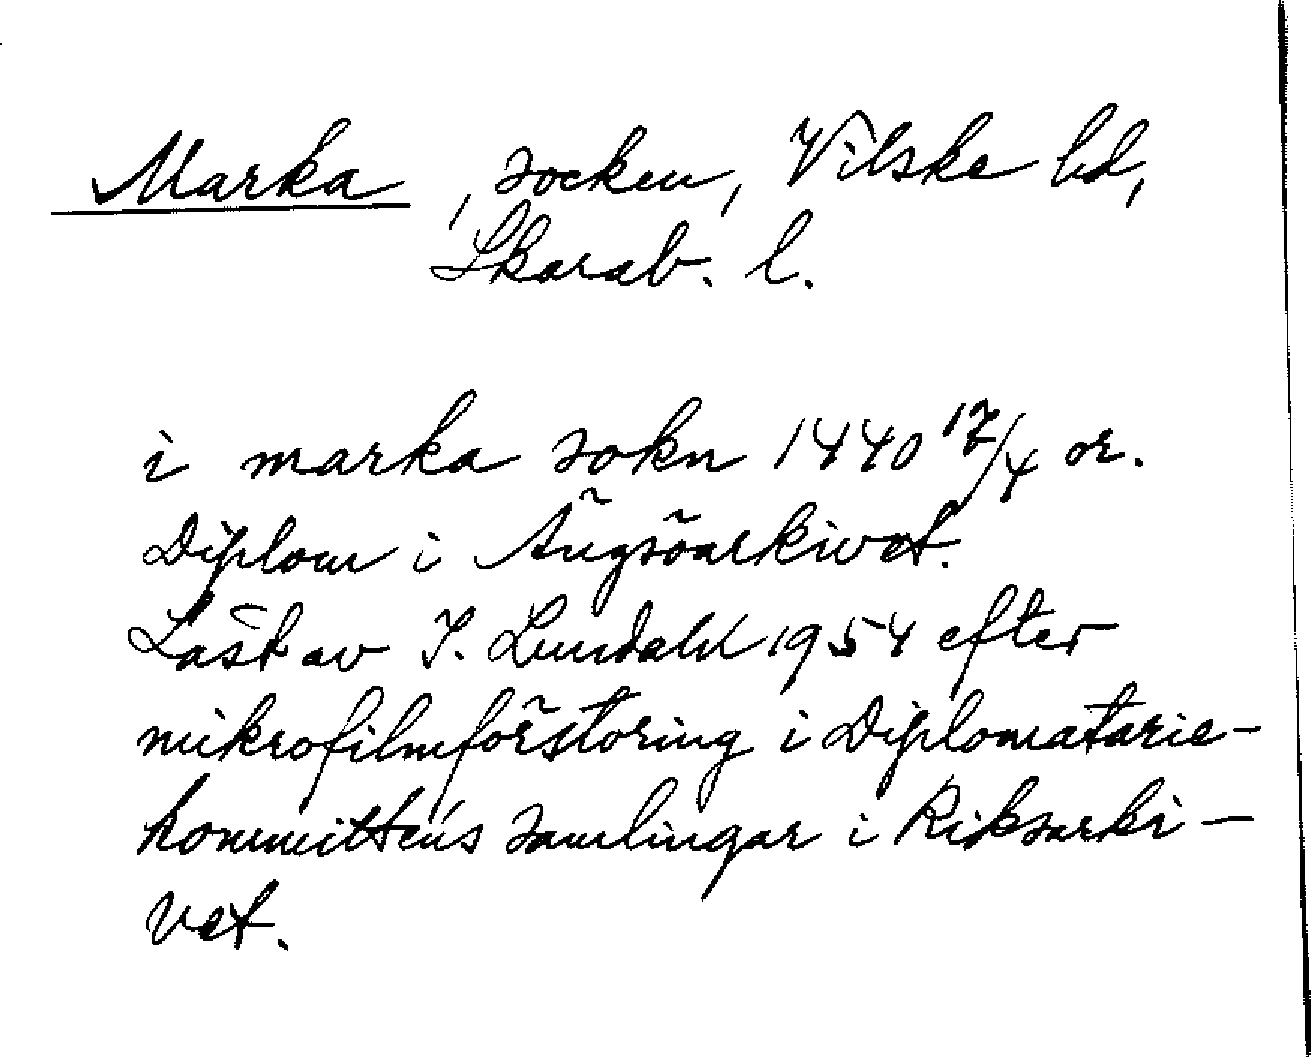 Marka, socken, Vilske hd,
Skarab. l.
i marka sokn 1440 17/4 or.
Diplom i Ängsöarkivet.
Läst av I. Lundahl 1954 efter
mikrofilmförstoring i Diplomatarie-
kommitténs samlingar i Riksarki-
vet.